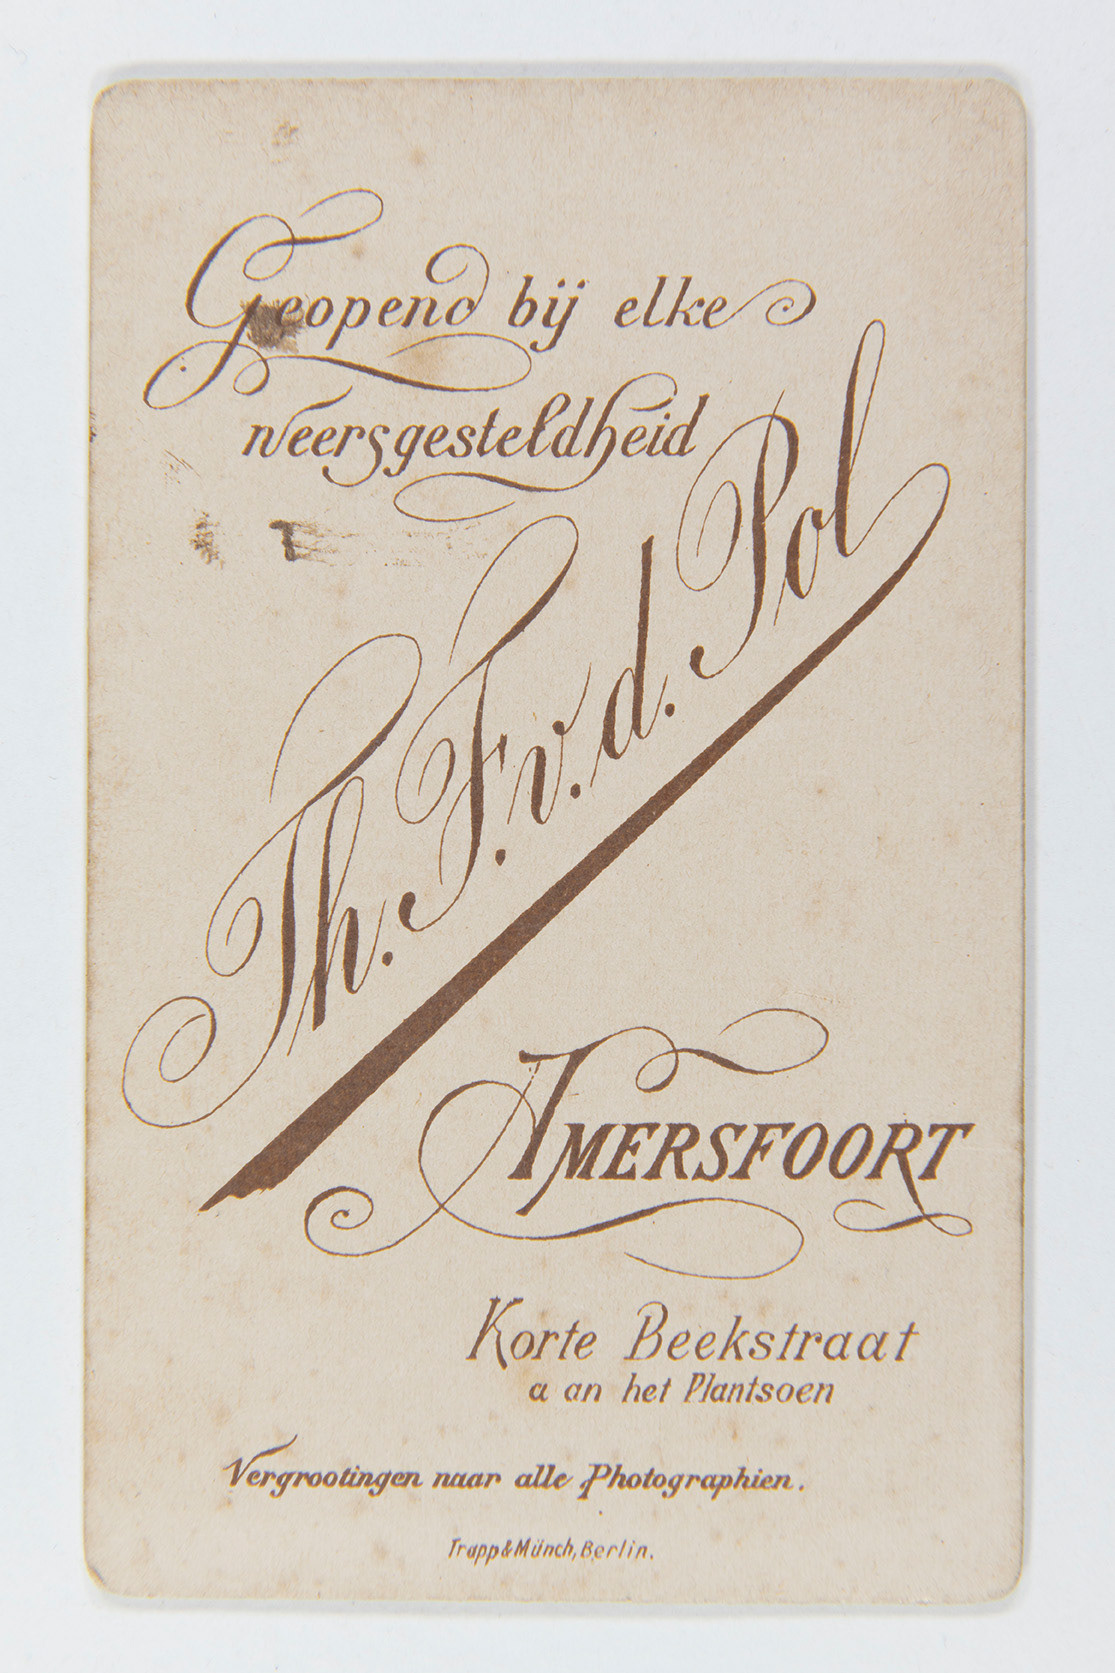 Geopend bij elke
weersgesteldheid
Th. F. v. d. Pol
AMERSFOORT
Korte Beekstraat
aan het Plantsoen
Vergrootingen naar alle Photographien.
Trapp & Münch, Berlin.